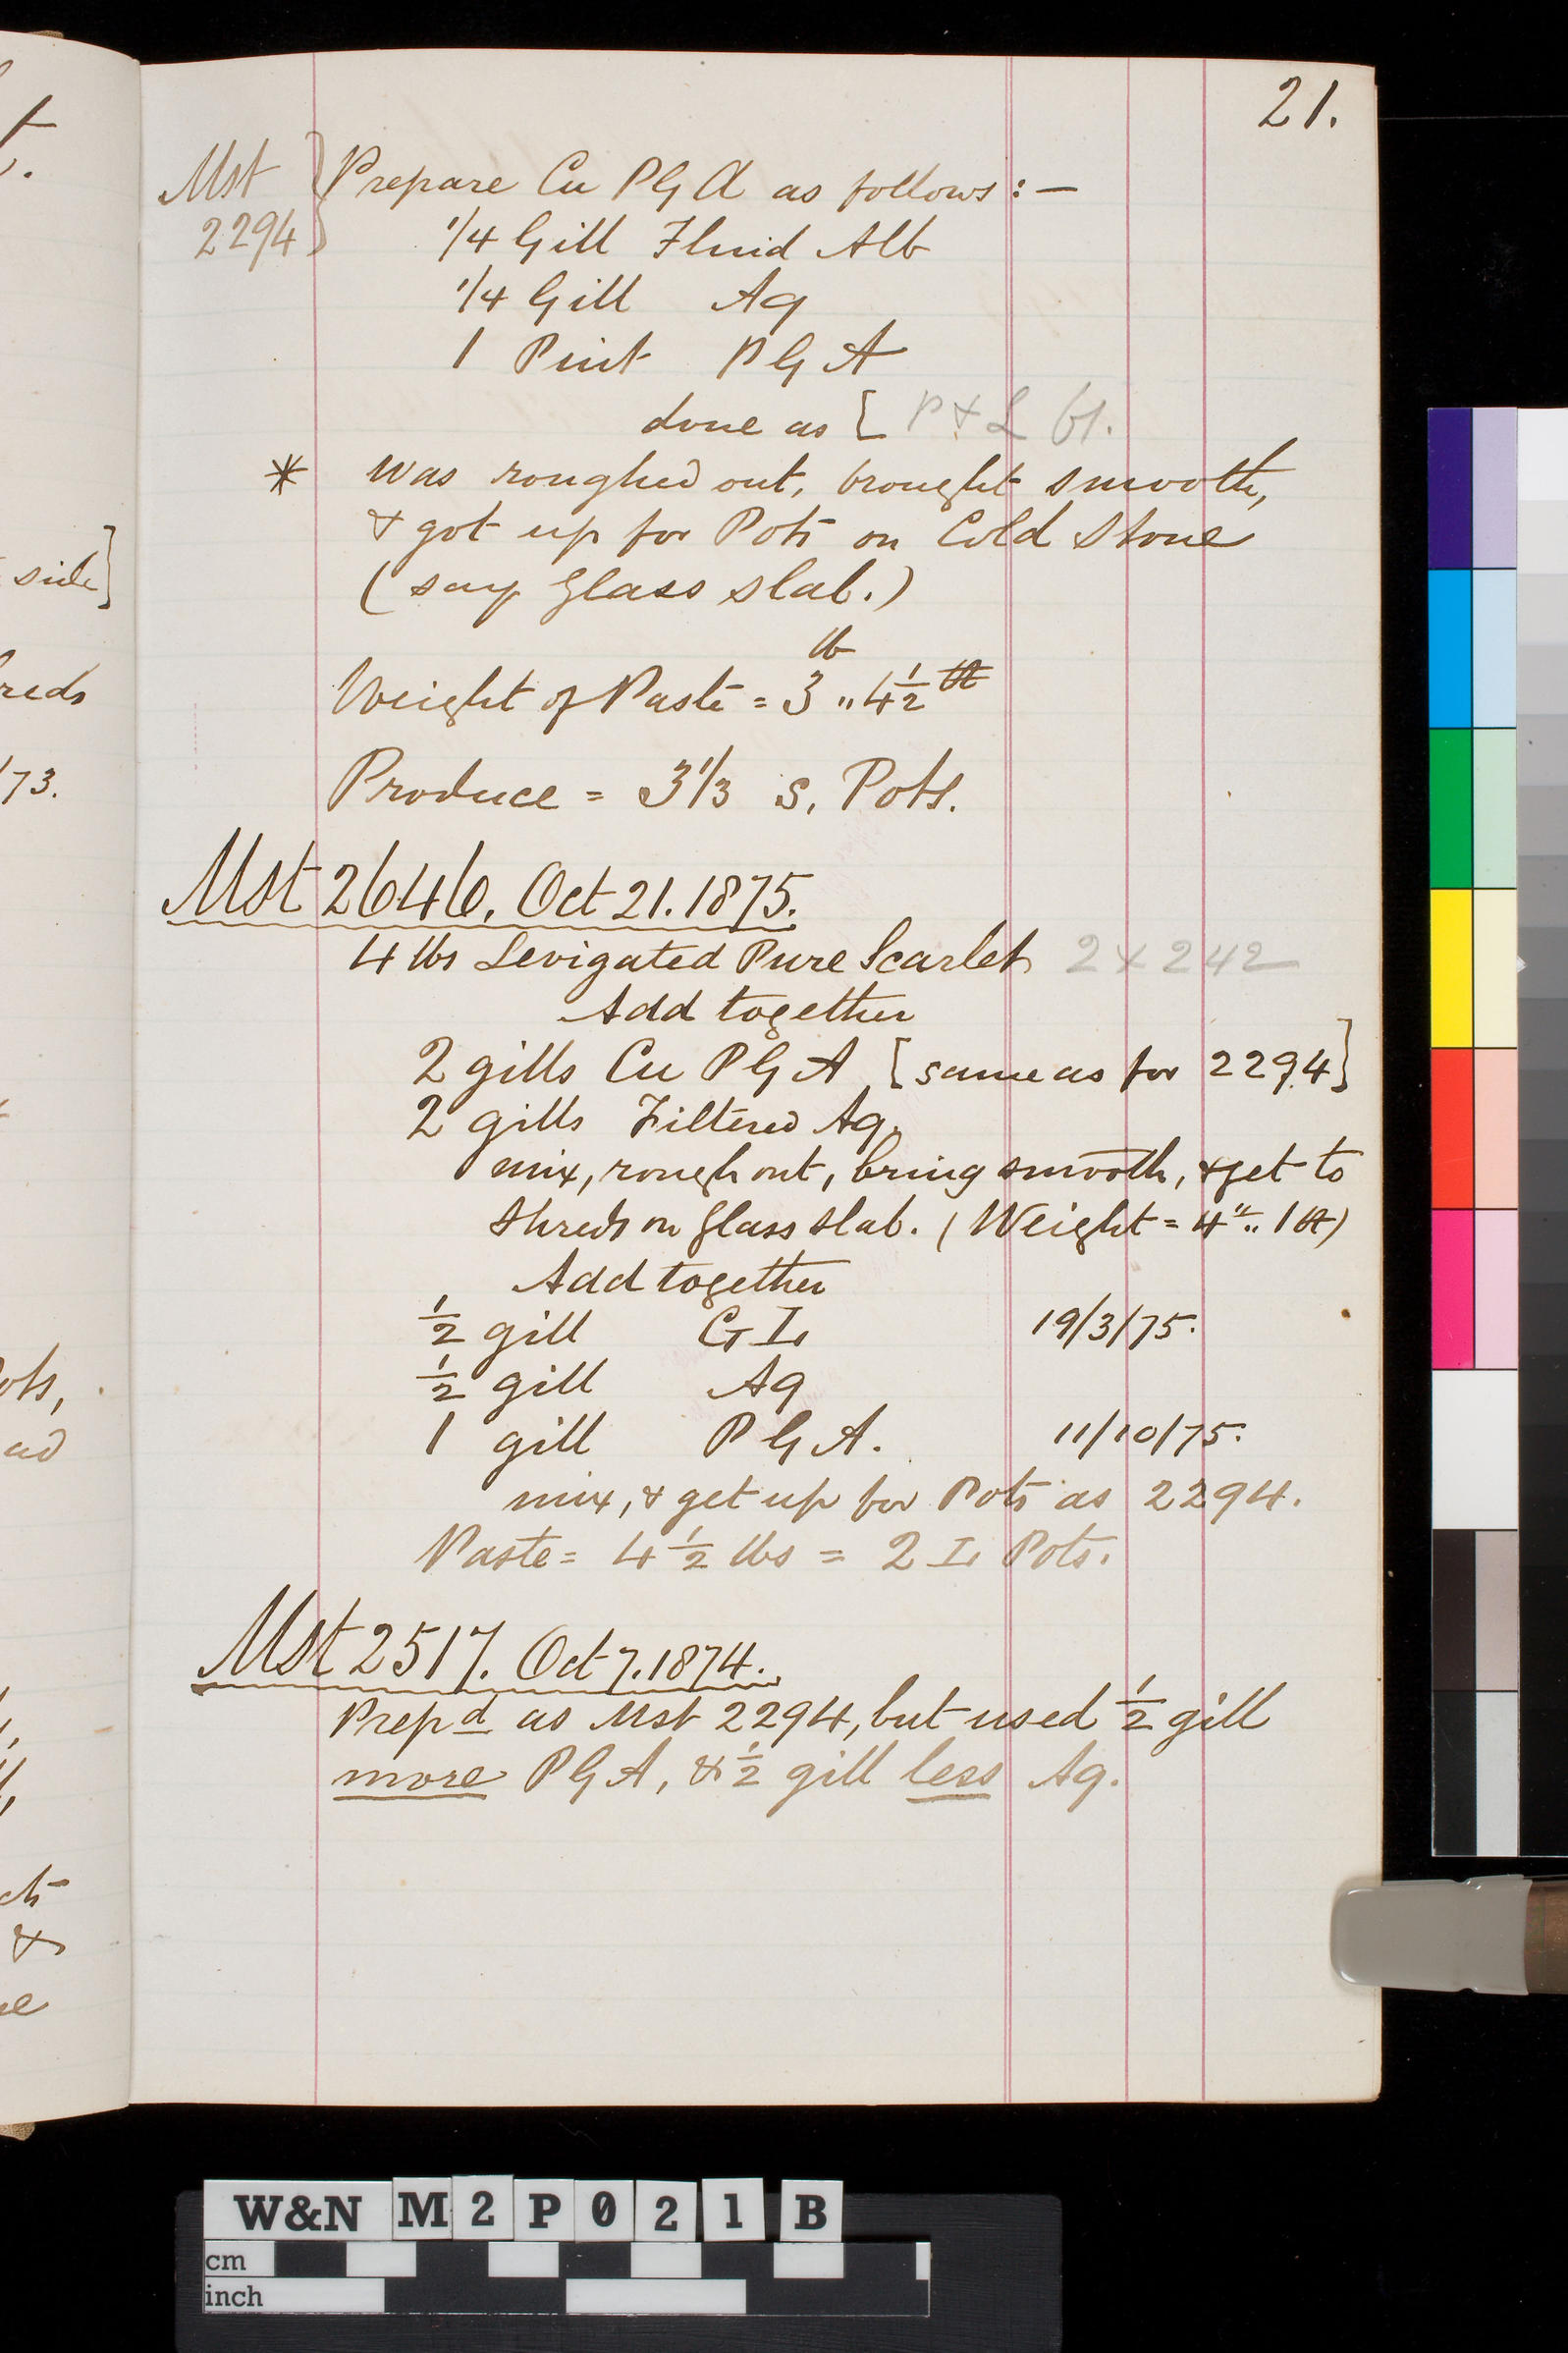 21.
Mst 2294 } Prepare Cu P G A as follows :—
1/4 Gill Fluid Alb
1/4 Gill Aq
1 Pint P G A
done as [ P & L 61.
* was roughed out, brought smooth,
& got up for Pots on Cold Stone
(say glass slab.)
lb
Weight of Paste = 3 „ 4 1/2
Produce = 3 1/3 S. Pots.
Mst 2646. Oct 21. 1875.
4 lbs Levigated Pure Scarlet 2 x 242
Add together
2 gills Cu P G A [same as for 2294]
2 gills Filtered Aq.
mix, rough out, bring smooth, & get to
shreds on glass slab. (Weight = 4 „ 1 )
Add together
1/2 gill G L 19/3/75.
1/2 gill Aq
1 gill P G A. 11/10/75.
mix, & get up for Pots as 2294.
Paste = 4 1/2 lbs = 2 L Pots.
Mst 2517. Oct 7. 1874.
Prepd as Mst 2294, but used 1/2 gill
more P G A, & 1/2 gill less Aq.
side]
reds
173.
ots,
ad
&
W&N M2P021B
cm
inch